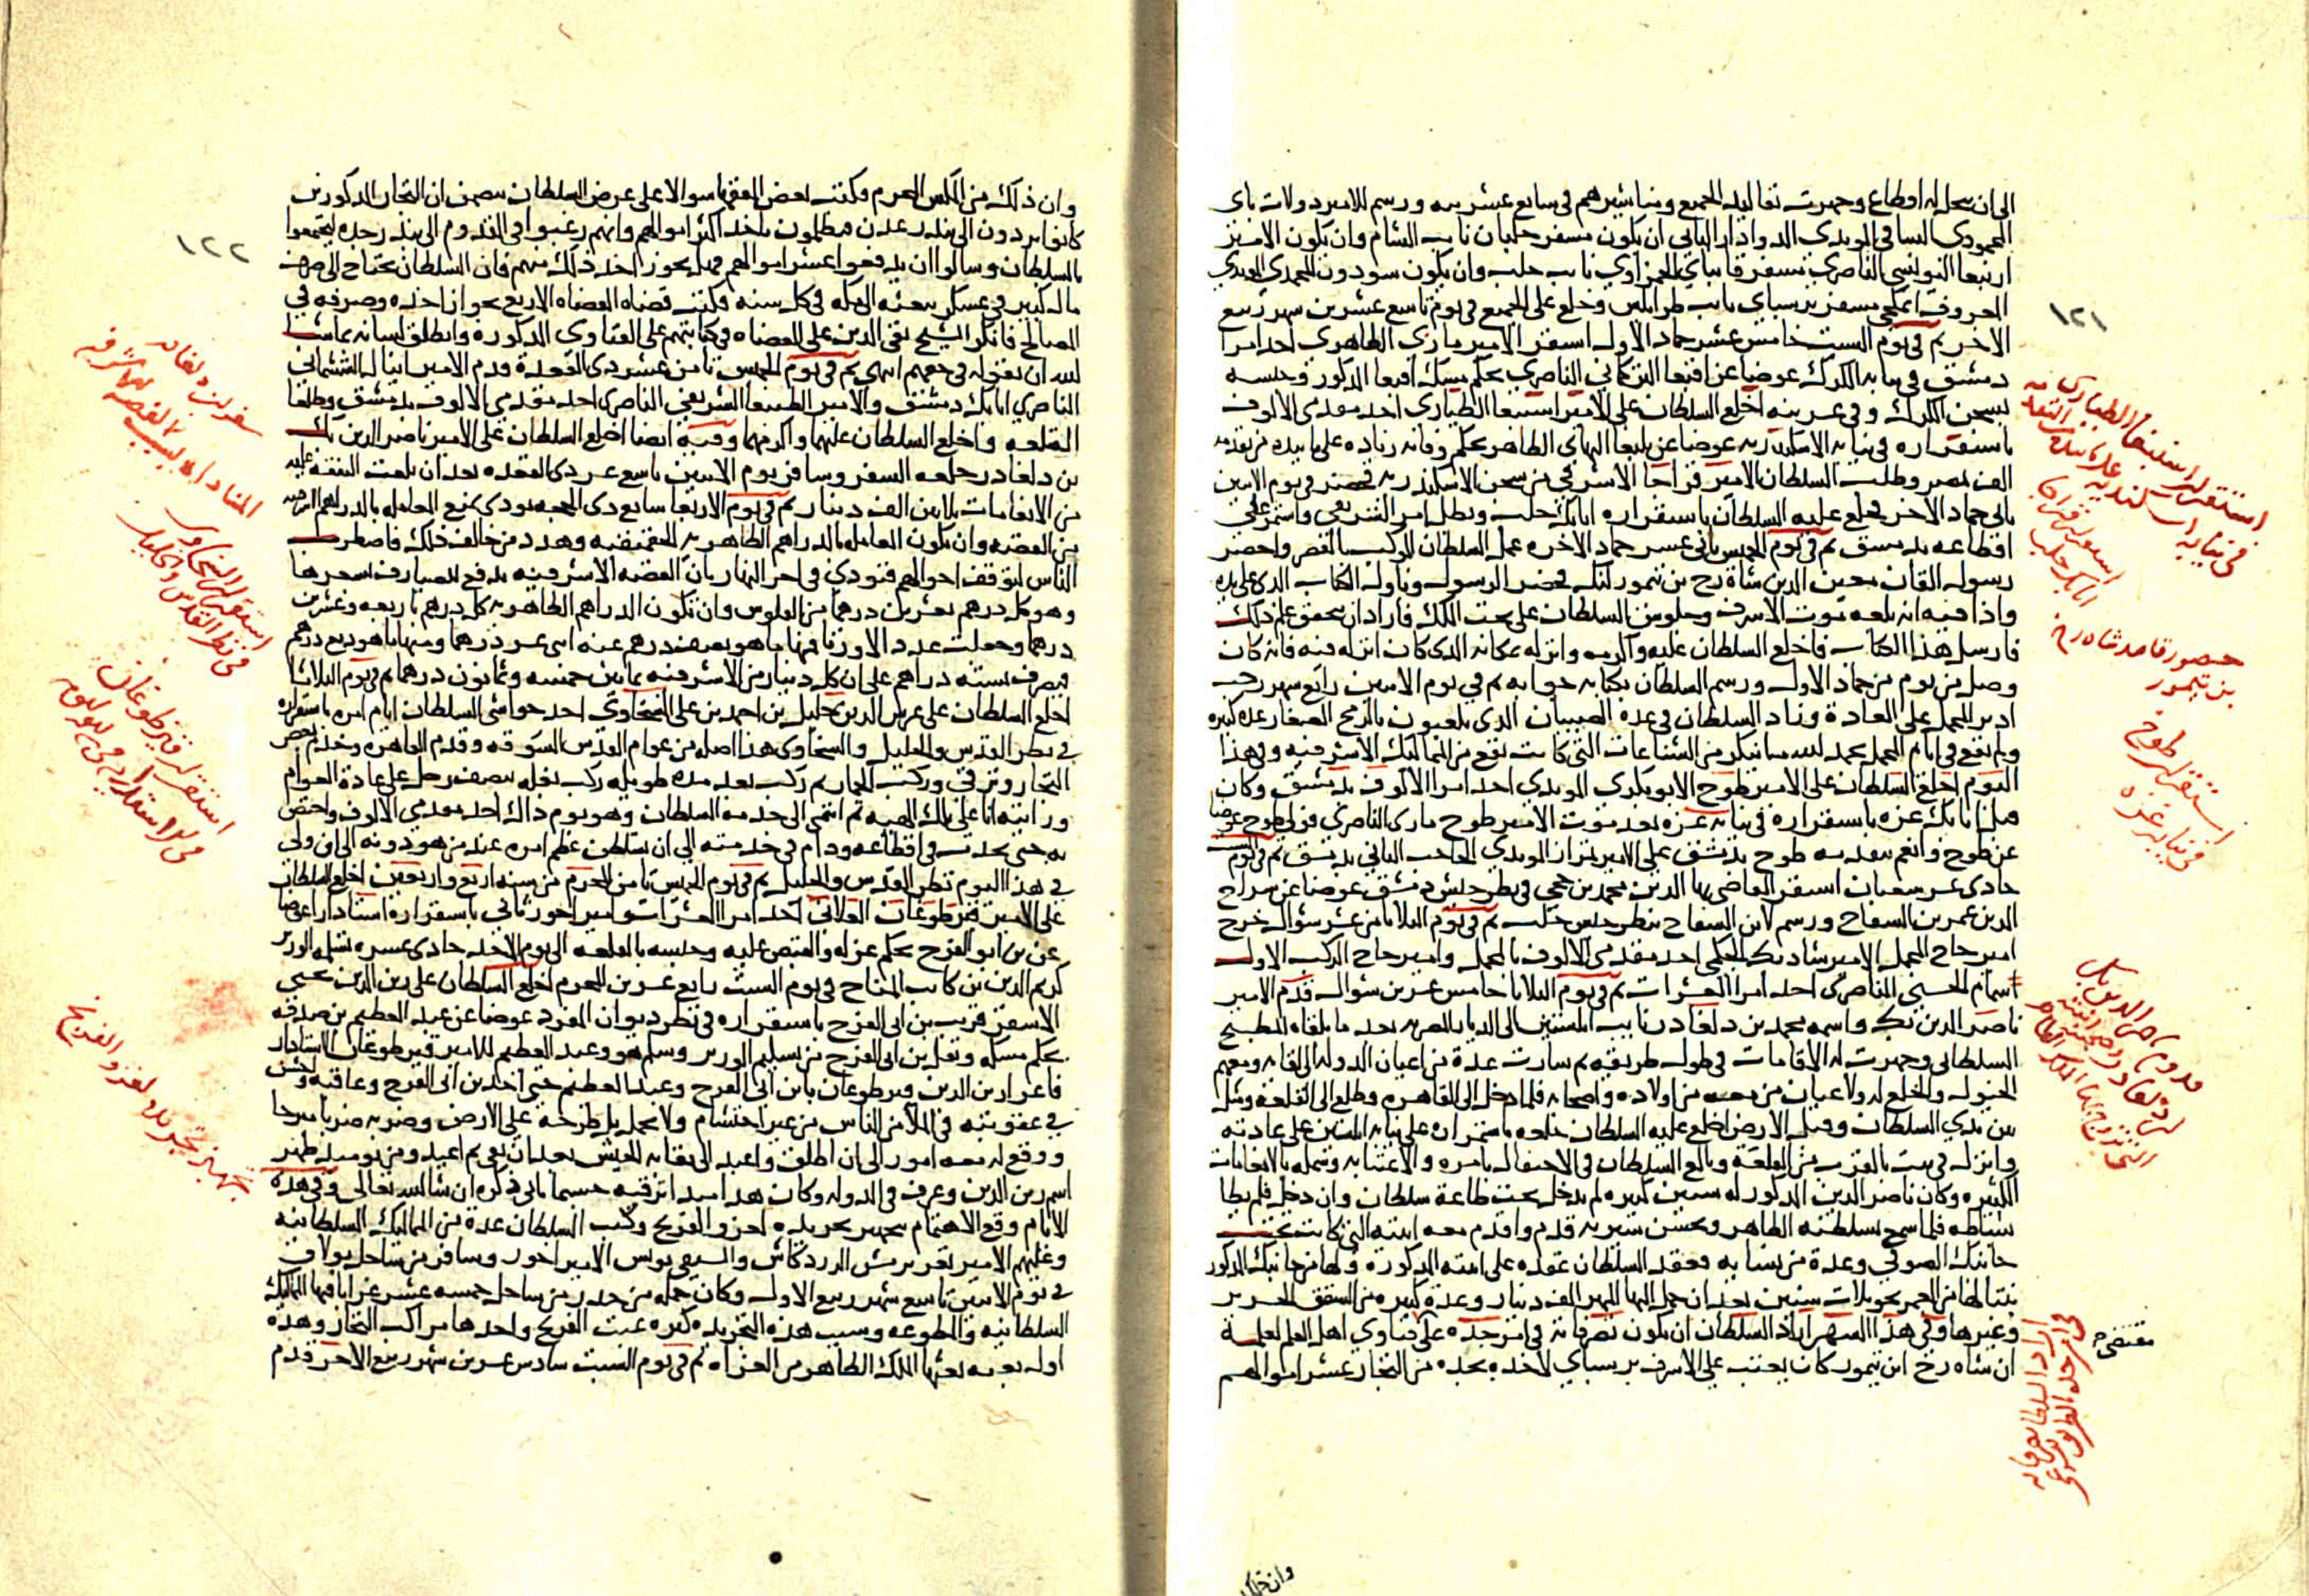 الى ان سحل له اقطاع وجهزت تقاليد الجميع ومناشيرهم فى سابع عشرينه ورسم للامير دولات باى
المحمودى الساقى المويدى الدوادار الثانى ان يكون مسفر جلبان نايب الشام وان يكون الامير
ارنبغا اليونسى الناصرى مسفر قانباى الحمزاوى نايب حلب وان يكون سودون المحمدى المويدى
المعروف اتمكجى مسفر برسباى نايب طرابلس وخلع على الجميع فى يوم تاسع عشرين شهر ربيع
الاخر ثم فى يوم السبت خامس عشر جماد الاول استقر الامير مازى الظاهرى احد امرا
دمشق فى نيابه الكرك عوضا عن اقبغا التركمانى الناصرى بحكم مسك اقبغا المذكور وحبسه
بسجن الكرك وفى عشرينه اخلع السلطان على الامير اسنبغا الطيارى احد مقدمى الالوف
باستقراره فى نيابه الاسكندريه عوضا عن يلبغا البهاى الظاهر بحكم وفاته زياده على ما بيده من تقدمه
الف بمصر وطلب السلطان الامير قراجا الاشرفى من سجن الاسكندريه فحضر فى يوم الاثنين
ثانى جماد الاخر فخلع عليه السلطان باستقراره اتابك حلب وبطل امر الشريفى واستمر على
اقطاعه بدمشق ثم فى يوم الخميس ثانى عشر جماد الاخره عمل السلطان الموكب بالقصر واحضر
رسول القان معين الدين شاه رخ بن تيمور لنك فحضر الرسول وناول الكتاب الذى على يده
واذا فيه انه بلغه موت الاشرف وجلوس السلطان على تخت الملك فاراد ان يتحقق علم ذلك
فارسل هذا الكتاب فاخلع السلطان عليه واكرمه وانزله بمكانه الذى كان انزله فيه فانه كان
وصل من يوم من جماد الاول ورسم السلطان بكتابه جوابه ثم فى يوم الاثنين رابع شهر رجب
ادير المحمل على العادة وزاد السلطان فى عده الصبيان الذى يلعبون بالرمح الصغار عده كبيره
ولم يقع فى ايام المحمل بحمد لله ما ينكر من الشناعات التى كانت تقع من المماليك الاشرفيه وفى هذا
اليوم اخلع السلطان على الامير طوخ الابوبكرى المويدى احد امرا الالوف بدمشق وكان
قبل اتابك غزه باستقراره فى نيابه غزه بعد موت الامير طوخ مازى الناصرى فولى طوخ عوضا
عن طوخ وانعم بتقدمه طوخ بدمشق على الامير تمراز المويدى الحاجب الثانى بدمشق ثم فى يوم السبت
حادى عشر شعبان استقر القاضى بها الدين محمد بن حجى فى نظر جيش دمشق عوضا عن سراج
الدين عمر بن السفاح ورسم لابن السفاح بنظر جيش حلب ثم فى يوم الثلاثا ثامن عشر شوال خرج
امير حاج المحمل الامير شادبك الجكمى احد مقدمى الالوف بالمحمل وامير حاج الركب الاول
سمام الحسنى الناصرى احد امرا العشرات ثم فى يوم الثلاثا خامس عشرين شوال قدم الامير
ناصر الدين بك واسمه محمد بن دلغادر نايب ابلستين الى الديار المصريه بعد ما تلقاه المطبخ
السلطانى وجهزت له الاقامات فى طول طريقه ثم سارت عدة من اعيان الدوله الى لقايه ومعهم
الخيول والخلع له ولاعيان من معه من اولاده واصحابه فلما دخل الى القاهره وطلع الى القلعه ومثل
بين يدى السلطان وقبل الارض اخلع عليه السلطان خلعه باستمراره على نيابه ابلستين على عادته
وانزله فى بيت بالقرب من القلعه وبالغ السلطان فى الاحتفال بامره والاعتنا به وشمله بالانعامات
الكثيره وكان ناصر الدين المذكور له سنين كثيره لم يدخل تحت طاعة سلطان وان دخل فلم يطا
بساطه فلما سمع بسلطنه الظاهر وبحسن سيرته قدم واقدم معه ابنته التى كانت تحت
جانبك الصوفى وعدة من نسايه فعقد السلطان عقده على ابنته المذكوره ولها من جانبك المذكور
بنتا لها من العمر نحو ثلاث سنين بعد ان حمل اليها المهر الف دينار وعدة كبيره من الشقق الحرير
وغيرها وفى هذا الشهر اراد السلطان ان يكون تصرفاته فى امر جده على فتاوى اهل العلم لعلمه
ان شاه رخ ابن تيمور كان يعتب على الاشرف برسباى لاخذه بجده من التجار عشر اموالهم
١٢١
استقرار اسنبغا الطيارى
فى نيابه اسكندريه على ما بيده من التقدمه
استقرار قراجا
اتابك حلب
حضور قاصد شاه رخ
بن تيمور
استقرار طوخ
فى نيابه غزه
قدوم ناصر الدين بك
بن دلغادر
اراد السلطان
مقتضى
وان ذلك
وان ذلك من المكس المحرم فكتب بعض الفقها سوالا على غرض السلطان يتضمن ان التجار المذكورين
كانوا يردون الى بندر عدن فيظلمون باخذ اكثر اموالهم وانهم رغبوا فى القدوم الى بندر جده ليحتموا
بالسلطان وسالوا ان يدفعوا عشر اموالهم فهل يجوز اخذ ذلك منهم فان السلطان يحتاج الى صرف
مال كبير فى عسكر يبعثه الى مكه فى كل سنه فكتب قضاه القضاه الاربع بجواز اخذه وصرفه فى
المصالح فانكر الشيخ تقى الدين على القضاه فى كتابتهم على الفتاوى المذكوره وانطلق لسانه بما شا
لله ان يقوله فى حقهم انتهى ثم فى يوم الخميس ثامن عشر ذى القعدة قدم الامير اينال الششمانى
الناصرى اتابك دمشق والامير الطنبغا الشريفى الناصرى احد مقدمى الالوف بدمشق وطلعا
القلعه واخلع السلطان عليهما واكرمهما وفيه ايضا اخلع السلطان على الامير ناصر الدين بك
بن دلغادر خلعه السفر وسافر يوم الاثنين تاسع عشر ذى القعده بعد ان بلغت النفقه عليه
من الانعامات ثلاثين الف دينار ثم فى يوم الاربعا سابع ذى الحجه نودى بمنع المعامله بالدراهم الاشرفيه
من الفضه وان يكون المعامله بالدراهم الظاهريه الجقمقيه وهدد من خالف ذلك فاضطرب
الناس لتوقف احوالهم فنودى فى اخر النهار بان الفضه الاشرفيه تدفع للصيارف بسعرها
وهو كل درهم بعشرين درهما من الفلوس وان تكون الدراهم الظاهريه كل درهم باربعه وعشرين
درهما وجعلت عددا لا وزنا فمنها ما هو بنصف درهم عنه اثنى عشر درهما ومنها ما هو ربع درهم
فيصرف بسته دراهم على ان كل دينار من الاشرفيه بمايتين خمسه وثمانون درهما ثم فى يوم الثلاثا
اخلع السلطان على غرس الدين خليل بن احمد بن على السخاوى احد حواشى السلطان ايام امره باستقراره
فى نظر القدس والخليل والسخاوى هذا اصله من عوام القدس السوقه وقدم القاهره وخدم بعض
التجار وترقى وركب الحمار ثم ركب بعد مده طويله ركب بغله بنصف رحل على عادة العوام
ورايته انا على تلك الهيه ثم انتمى الى خدمه السلطان وهو يوم ذاك احد مقدمى الالوف واختص
به حتى تحدث فى اقطاعه ودام فى خدمته الى ان تسلطن عظم امره عند من هو دونه الى ان ولى
فى هذا اليوم نظر القدس والخليل ثم فى يوم الخميس ثامن المحرم من سنه اربع واربعين اخلع السلطان
على الامير قيز طوغان العلائى احد امرا العشرات وامير اخور ثانى باستقراره استادارا عوضا
عن بن ابو الفرج بحكم عزله والقبض عليه وحبسه بالقلعه الى يوم الاحد حادى عشره تسلمه الوزير
كريم الدين بن كاتب المناخ فى يوم السبت رابع عشرين المحرم اخلع السلطان على زين الدين يحيى
الاشقر قريب بن ابى الفرج باستقراره فى نظر ديوان المفرد عوضا عن عبد العظيم بن صدقه
بحكم مسكه ونقل بن ابى الفرج من تسليم الوزير وسلم هو وعبد العظيم للامير قيز طوغان استادار
فاغرا زين الدين قيز طوغان بابن ابى الفرج وعبد العظيم حتى اخذ بن ابى الفرج وعاقبه وافحش
فى عقوبته فى الملا من الناس من غير احتشام ولا تجمل بل طرحه على الارض وضربه ضربا مبرحا
ووقع له معه امور الى ان اطلق واعيد الى نقابه الجيش بعد ان نفى ثم اعيد ومن يوميذ ظهر
اسم زين الدين وعرف فى الدوله وكان هذا مبدا ترقيه حسبما ياتى ذكره ان شا الله تعالى وفى هذه
الايام وقع الاهتمام بتجهيز تجريده لغزو الفرنج وكتب السلطان عدة من المماليك السلطانيه
وعليهم الامير تغرى برمش الزردكاش والسيفى يونس الامير اخور وسافر من ساحل بولاق
فى يوم الاثنين تاسع شهر ربيع الاول وكان جمله من حدر من ساحل خمسه عشر غرابا فيها المماليك
السلطانيه والمطوعه وسبب هذه التجريده كثره عبث الفرنج واخذها مراكب التجار وهذه
اول بعثه بعثها الملك الظاهر من الغزاه ثم فى يوم السبت سادس عشرين شهر ربيع الاخر قدم
١٢٢
سفر بن دلغادر
المناداه بسبب الفضه الاشرفيه
استقرار السخاوى
فى نظر القدس والخليل
استقرار قيز طوغان
فى الاستداريه
تجهيز تجريده لغزو الفرنج